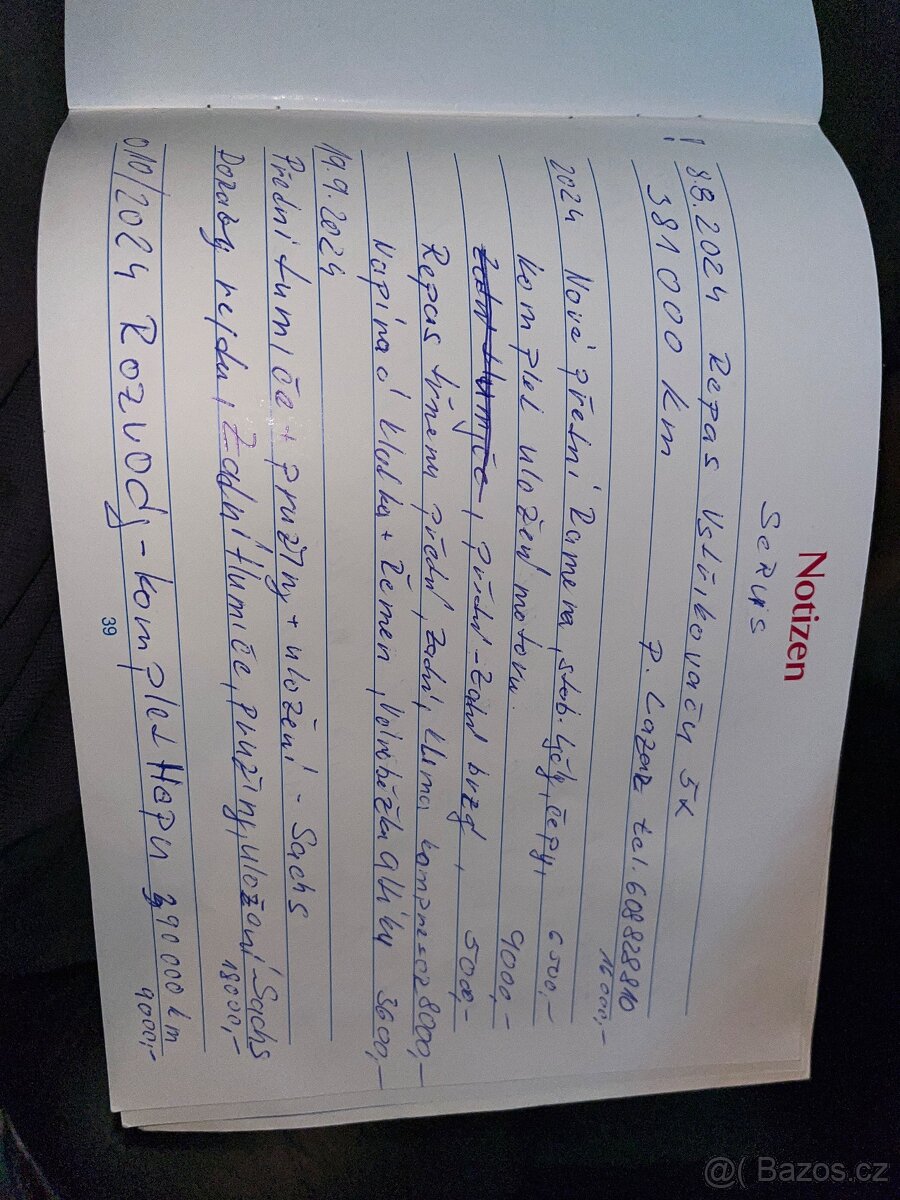 Notizen
Servis
! 8.8.2024 Repas Vstřikovačů 5x
381000 km P. Lazar tel. 608828810
16000,-
2024 Nové přední Ramena, stab. tyčky, čepy, 6500,-
komplet uložení motoru. 9000,-
Zadní tlumiče, přední-Zadní brzd, 5000,-
Repas třmenu přední, zadní, klima kompresor 8000,-
Napínací kladka + řemen, Volnoběžka Alt. ky 3600,-
19.9.2024
Přední tlumiče + pružiny + uložení - Sachs
Dorazy rejdu, Zadní tlumiče, pružiny, uložení Sachs
18000,-
010/2024 Rozvody - komplet Hepu 390000 km
9000,-
39
@( Bazos.cz